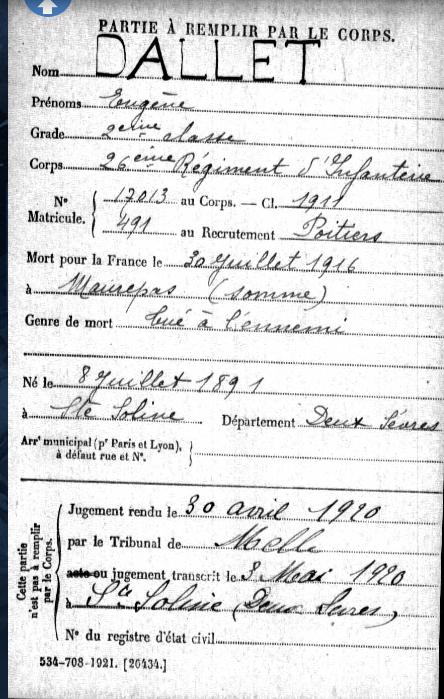 PARTIE À REMPLIR PAR LE CORPS.
Nom DALLET
Prénoms Eugène
Grade 2eme classe
Corps 26eme Régiment d'Infanterie
N° Matricule. { 17013 au Corps. — Cl. 1911
491 au Recrutement Poitiers
Mort pour la France le 30 Juillet 1916
à Maurepas (Somme)
Genre de mort tué à l'ennemi
Né le 8 Juillet 1891
à Ste Soline Département Deux Sèvres
Arrt municipal (pr Paris et Lyon), à défaut rue et N°. }
Cette partie n'est pas à remplir par le Corps. { Jugement rendu le 30 avril 1920
par le Tribunal de Melle
acte ou jugement transcrit le 8 Mai 1920
à Ste Soline (Deux Sevres)
N° du registre d'état civil
534-708-1921. [26434.]